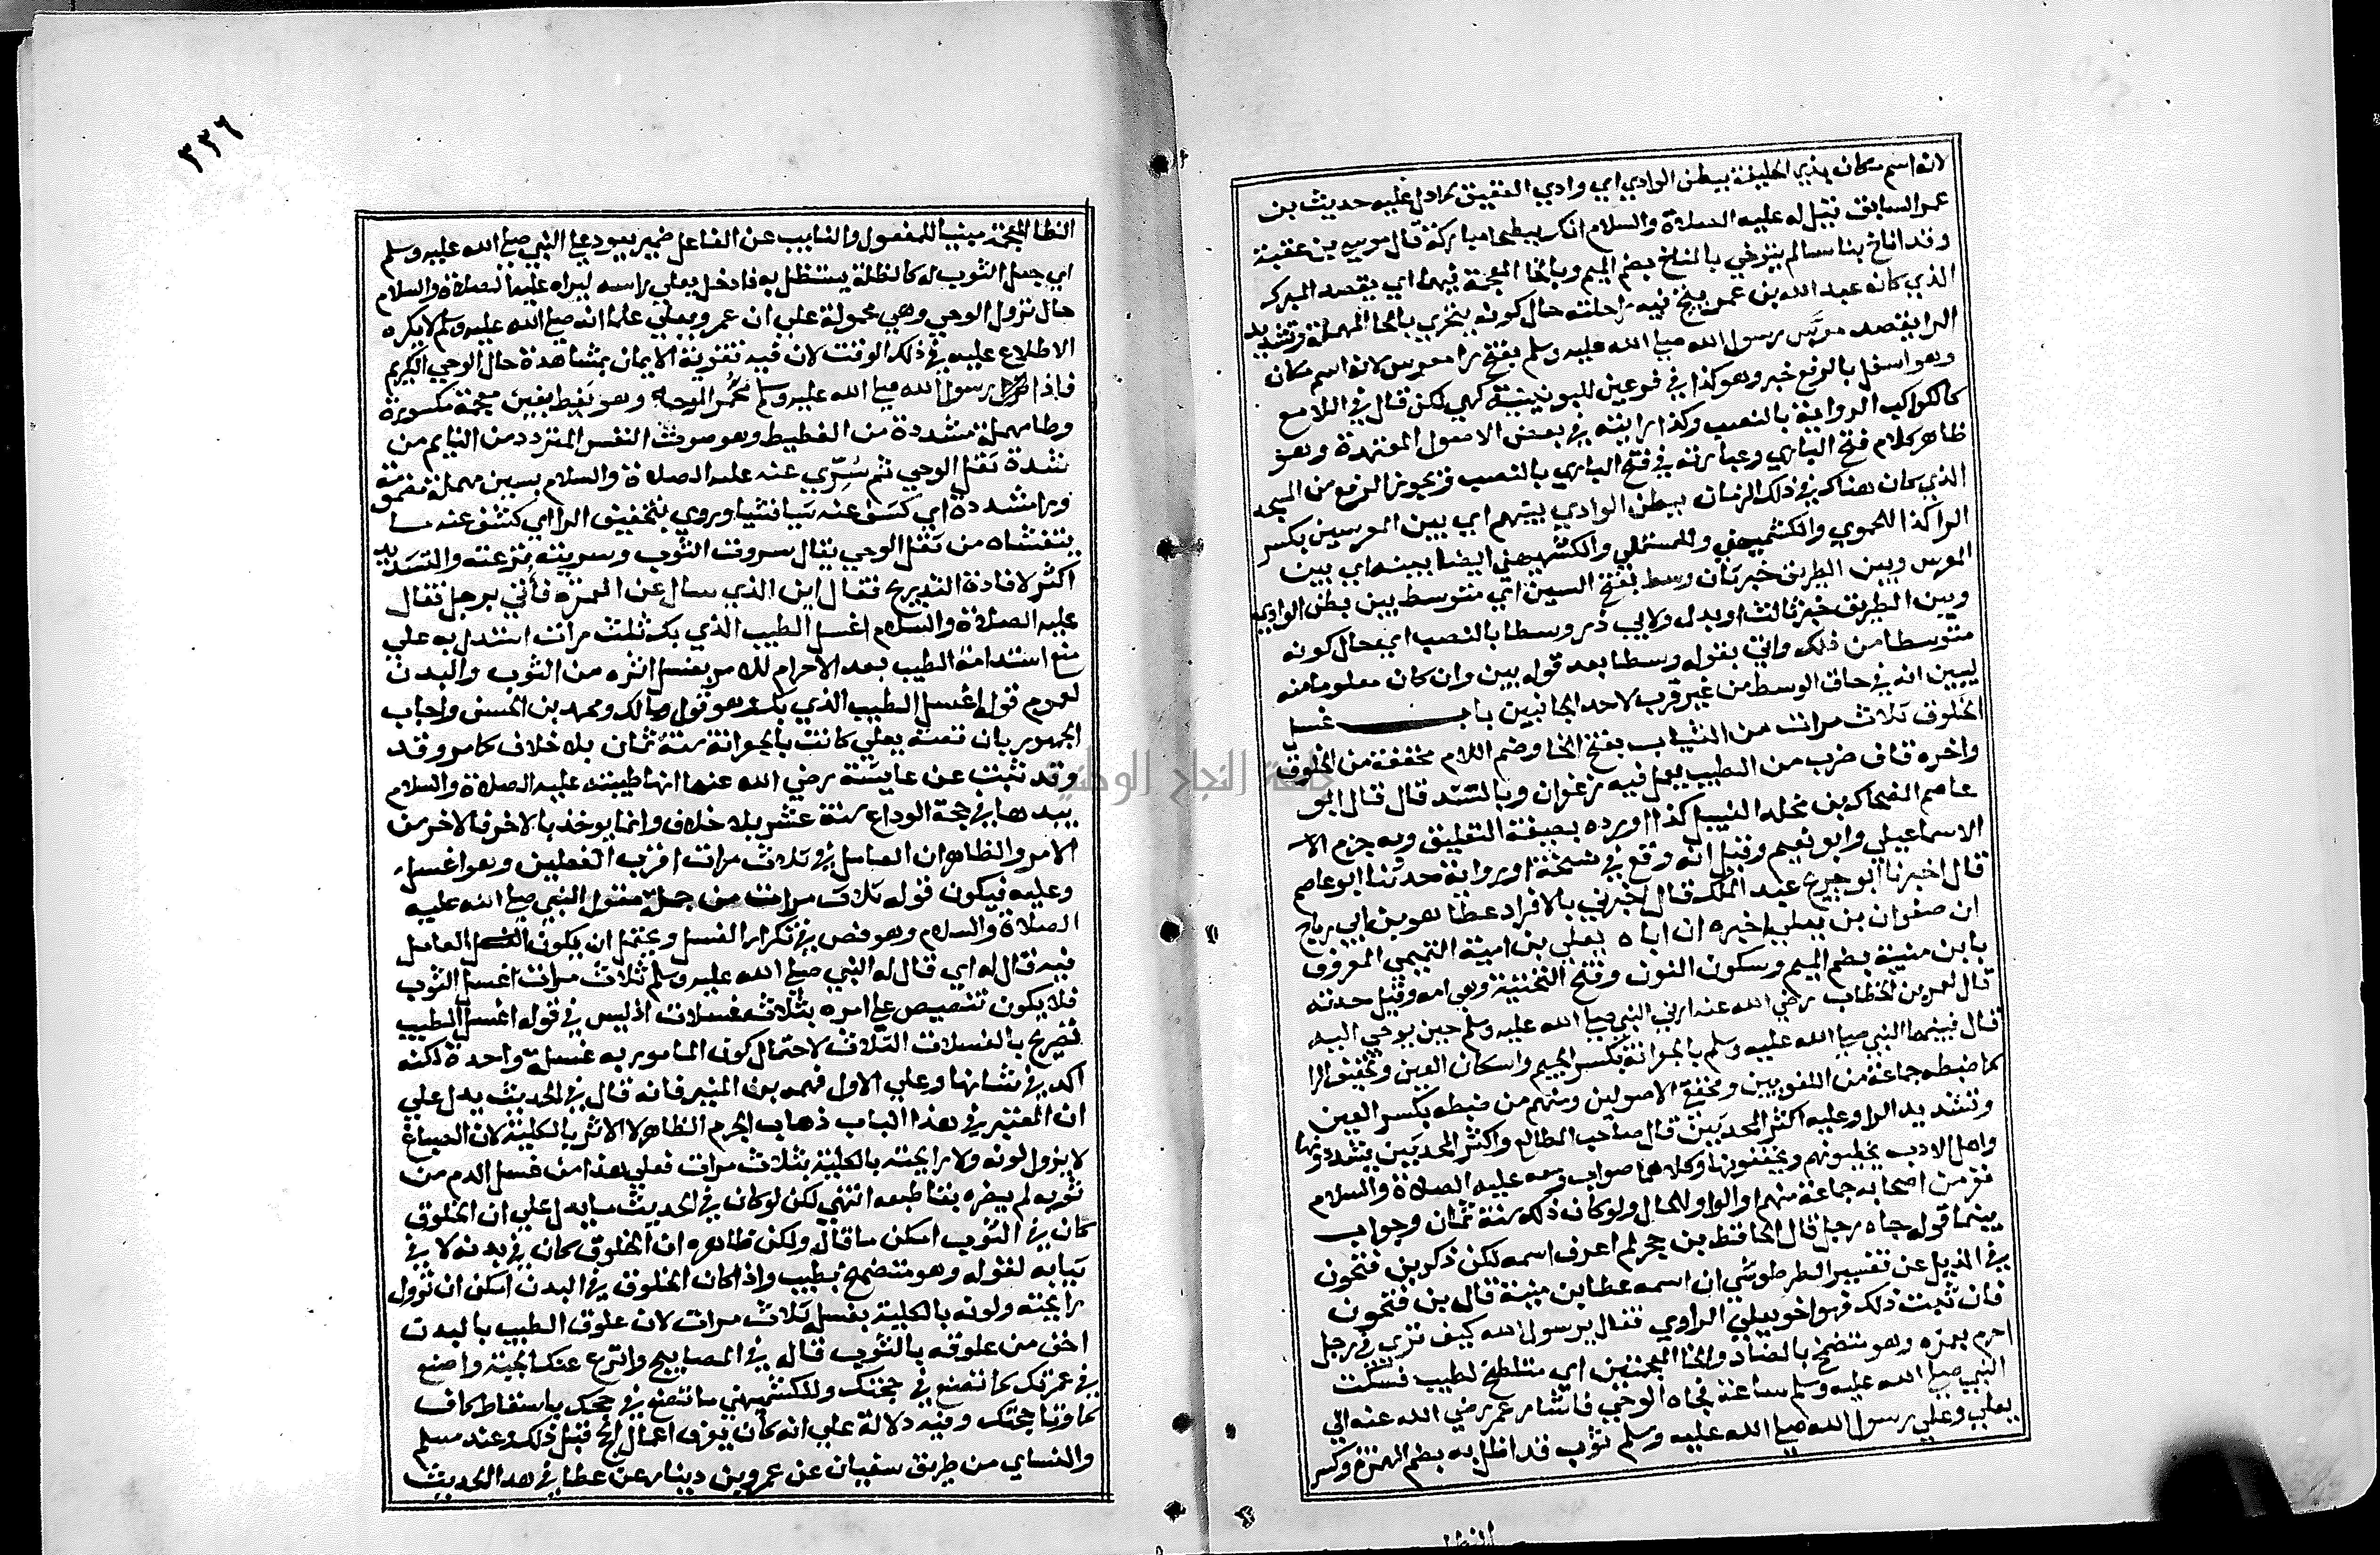 لانه اسم مكان بذي الحليفة ببطن الوادي اي وادي العقيق كما دل عليه حديث بن
عمر السابق فقيل له عليه الصلاة والسلام انك ببطحا مباركة قال موسى بن عقبة
وقد اناخ بنا سالم يتوخي بالمناخ بضم الميم وبالخا المعجمة فيهما اي يقصد المبرك
الذي كان عبد الله بن عمر ينيخ فيه راحلته حال كونه يتحري بالحا المهملة وتشديد
الرا يقصد معرس رسول الله صلى الله عليه وسلم بفتح را معرس لانه اسم مكان
وهو اسفل بالرفع خبر وهو كذا في فرعين لليونينية كهي لكن قال في اللامع
كالكواكب الرواية بالنصب وكذا رايته في بعض الاصول المعتمدة وهو
ظاهر كلام فتح الباري وعبارته في فتح الباري بالنصب وتجويز الرفع من المسجد
الذي كان هناك في ذلك الزمان ببطن الوادي بينهم اي بين المعرسين بكسر
الرا كذا للحموي والكشميهني وللمستملي والكشميهني ايضا بينه اي بين
المعرس وبين الطريق خبر ثان وسط بفتح السين اي متوسط بين بطن الوادي
وبين الطريق خبر ثالث او بدل ولابي ذر وسطا بالنصب اي حال كونه
متوسطا من ذلك واتي بقوله وسطا بعد قوله بين وان كان معلوما منه
ليبين انه في حاق الوسط من غير قرب لاحد الجانبين باب غسل
الخلوق ثلاث مرات من الثياب بفتح الخا وضم اللام مخففة من الخلوق
واخره قاف ضرب من الطيب يعمل فيه زعفران وبالسند قال قال ابو
عاصم الضحاك بن مخلد النبيل كذا اورده بصيغة التعليق وبه جزم الا
الاسماعيلي وابو نعيم وقيل انه وقع في نسخة او رواية حدثنا ابو عاصم
قال اخبرنا ابو جريج عبد الملك قال اخبرني بالافراد عطا هو بن ابي رباح
ان صفوان بن يعلي اخبره ان اباه يعلي بن امية التميمي المعروف
بابن منية بضم الميم وسكون النون وفتح التحتية وهي امه وقيل جدته
قال لعمر بن الخطاب رضي الله عنه ارني النبي صلى الله عليه وسلم حين يوحي اليه
قال فبينما النبي صلى الله عليه وسلم بالجعرانة بكسر الجيم واسكان العين وتخفيف الرا
كما ضبطه جماعة من اللغويين ومحققي الاصولين ومنهم من ضبطه بكسر العين
وتشديد الرا وعليه اكثر المحدثين قال صاحب المطالع واكثر المحدثين يشددونها
واهل الادب يخطونهم ويخففونها وكلاهما صواب ومعه عليه الصلاة والسلام
نفر من اصحابه جماعة منهم والواو للحال ولو كان ذلك سنة ثمان وجواب
بينما قوله جاه رجل قال الحافظ بن حجر لم اعرف اسمه لكن ذكر بن فتحون
في الذيل عن تفسير الطرطوشي ان اسمه عطا بن منية قال بن فتحون
فان ثبت ذلك فهو اخو يعلي الراوي فقال يرسول الله كيف تري في رجل
احرم بعمرة وهو متضمخ بالضاد والخا المعجمتين اي متلطخ بطيب فسكت
النبي صلى الله عليه وسلم ساعة فجاه الوحي فاشار عمر رضي الله عنه الي
يعلي وعلي رسول الله صلى الله عليه وسلم ثوب قد اظل به بضم الهمزة وكسر
الظا
٣٣٦
الظا المعجمة مبنيا للمفعول والنايب عن الفاعل ضمير يعود على النبي صلى الله عليه وسلم
اي جعل الثوب له كالظلة يستظل به فادخل يعلي راسه ليراه عليه الصلاة والسلام
حال نزول الوحي وهي محمولة علي ان عمر ويعلي علما انه صلى الله عليه وسلم لا يكره
الاطلاع عليه في ذلك الوقت لان فيه تقوية الايمان بمشاهدة حال الوحي الكريم
فاذا رسول الله صلى الله عليه وسلم محمر الوجه وهو يغط بغين معجمة مكسورة
وطا مهملة مشددة من الغطيط وهو صوت النفس المتردد من النايم من
شدة ثقل الوحي ثم سُرِّي عنه عليه الصلاة والسلام بسين مهملة مضمومة
ورا مشددة اي كشف عنه شيا فشيا وروي بتخفيف الرا اي كشف عنه ما
يتغشاه من ثقل الوحي يقال سروت الثوب وسريته نزعته والتشديد
اكثر لافادة التدريج فقال اين الذي سال عن العمرة فأتي برجل فقال
عليه الصلاة والسلام اغسل الطيب الذي بك ثلث مرات استدل به علي
منع استدامة الطيب بعد الاحرام للامر بغسل اثره من الثوب والبدن
لعموم قوله اغسل الطيب الذي بك وهو قول مالك ومحمد بن الحسن واجاب
الجمهور بان قصة يعلي كانت بالجعرانة سنة ثمان بلا خلاف كامر وقد
وقد ثبت عن عايشة رضي الله عنها انها طيبته عليه الصلاة والسلام
بيدها في حجة الوداع سنة عشر بلا خلاف وانما يوخذ بالاخر فالاخر من
الامر والظاهر ان العامل في ثلاث مرات اقرب الفعلين وهو اغسل
وعليه فيكون قوله ثلاث مرات من جملة مقول النبي صلى الله عليه
الصلاة والسلام وهو نص في تكرار الغسل ويحتمل ان يكون العامل
فيه قال له اي قال له النبي صلى الله عليه وسلم ثلاث مرات اغسل الثوب
فلا يكون تنصيص علي امره بثلاث غسلات اذ ليس في قوله اغسل الطيب
تصريح بالغسلات الثلاث لاحتمال كون المامور به غسلة واحدة لكنه
اكد في شانها وعلي الاول فهمه بن المنير فانه قال في الحديث يدل علي
ان المعتبر في هذا الباب ذهاب الجرم الظاهر لا الاثر بالكلية لان الصباغ
لا يزول لونه ولا رايحته بالكلية بثلاث مرات فعلي هذا من غسل الدم من
ثوبه لم يضره بقا طبعه انتهي لكن لو كان في الحديث ما يدل علي ان الخلوق
كان في الثوب امكن ما قال ولكن ظاهره ان الخلوق كان في بدنه لا في
ثيابه لقوله وهو متضمخ بطيب واذا كان الخلوق في البدن امكن ان تزول
رايحته ولونه بالكلية بغسله ثلاث مرات لان علوق الطيب بالبدن
اخف من علوقه بالثوب قاله في المصابيح وانزع عنك الجبة واصنع
في عمرتك كما تصنع في حجتك وللكشميهني ما تصنع في حجك باسقاط كاف
كما وتا حجتك وفيه دلالة علي انه كان يعرف اعمال الحج قبل ذلك وعند مسلم
والنساي من طريق سفيان عن عمرو بن دينار عن عطا في هذا الحديث
جامعة النجاح الوطنية